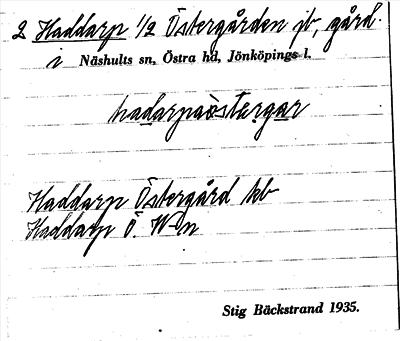 2 Haddarp 1/2 Östergården jb, gård.
i Näshults sn, Östra hd, Jönköpings l.
hadarpaöstergar
Haddarp Östergård kb
Haddarp Ö. W-n
Stig Bäckstrand 1935.